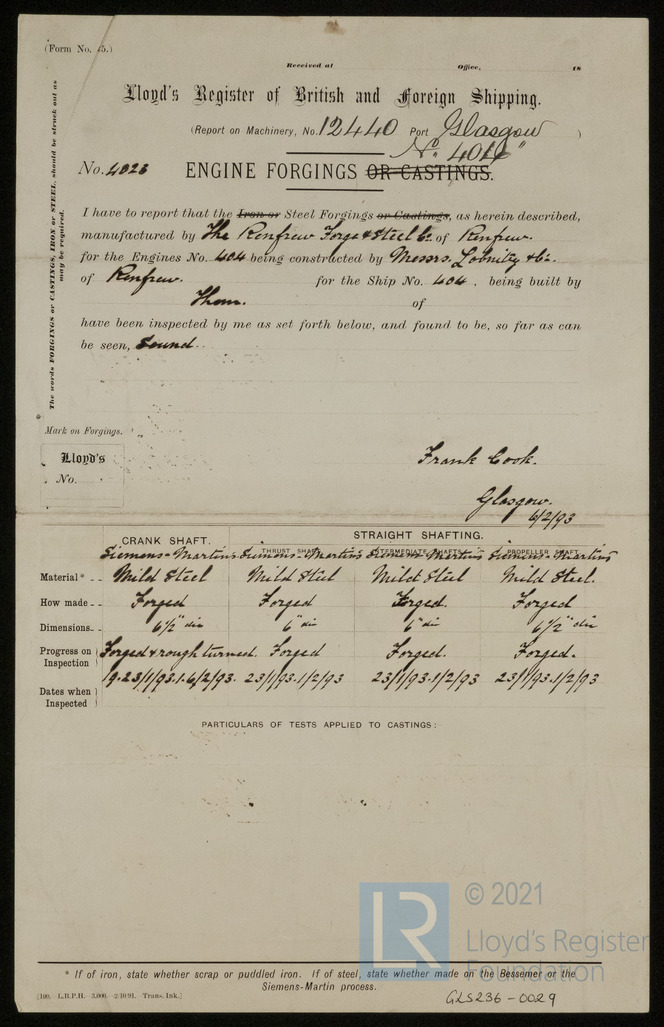 (Form No. 45.)
Received at Office, 18
Lloyd's Register of British and Foreign Shipping.
(Report on Machinery, No. 12440 Port Glasgow )
No. 4023
ENGINE FORGINGS OR CASTINGS.
The words FORGINGS or CASTINGS, IRON or STEEL, should be struck out as
may be required.
I have to report that the Iron or Steel Forgings or Castings, as herein described,
manufactured by The Renfrew Forge & Steel Co. of Renfrew.
for the Engines No. 404 being constructed by Messrs. Lobnitz & Co.
of Renfrew. for the Ship No. 404 , being built by
Them. of
have been inspected by me as set forth below, and found to be, so far as can
be seen, Sound.
Mark on Forgings.
Lloyd's
No.
Frank Cook.
Glasgow.
6/2/93
CRANK SHAFT. STRAIGHT SHAFTING.
THRUST SHAFT INTERMEDIATE SHAFTS PROPELLER SHAFT
Siemens-Martins Siemens-Martins Siemens-Martins Siemens-Martins
Material* Mild Steel Mild Steel Mild Steel Mild Steel.
How made Forged Forged Forged. Forged
Dimensions 6½" dia 6" dia 6" dia 6½" dia
Progress on Inspection Forged & rough turned Forged Forged. Forged.
Dates when Inspected 9.23/1/93.1.6/2/93. 23/1/93.1/2/93 23/1/93.1/2/93 23/1/93.1/2/93
PARTICULARS OF TESTS APPLIED TO CASTINGS:
© 2021
LR
Lloyd's Register
Foundation
* If of iron, state whether scrap or puddled iron. If of steel, state whether made on the Bessemer or the
Siemens-Martin process.
[190. L.B.P.H. 3,000. 2/10/91. Trans. Ink.]
GLS236-0029